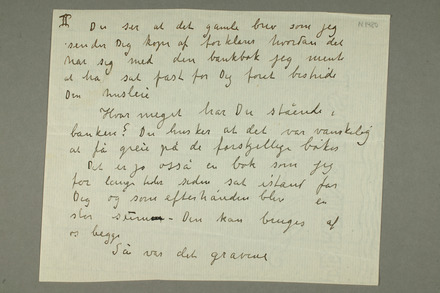 II
Du ser at det gamle brev som jeg
sender Dig kopi af forklarer hvordan det
har sig med den bankbok jeg mente
at ha sat fast for Dig foret bestride
Din husleie
Hvor meget har Du stående i
banken? Du husker at det var vanskelig
at få greie på de forskjellige bøker
Det er jo også en bok som jeg
for lange tider siden sat istand for
Dig og som efterhånden blev en
stor sum – Den kan bruges af
os begge
Så var det gravene